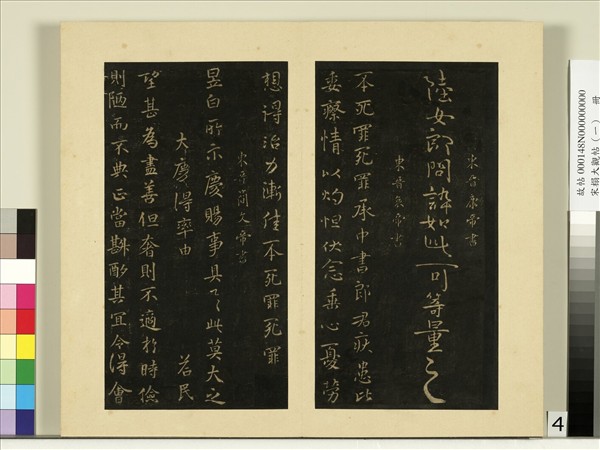 東晉康帝書
陸女郎問如此可等量之
東晉哀帝書
丕死罪死罪承中書郎君疾患此
委瘵情以灼怛伏念垂心憂勞
想得治力漸佳丕死罪死罪
東晉簡文帝書
昱白所示慶賜事具之此莫大之
大慶得率由 若民
望甚為盡善但奢則不適於時儉
則陋而不典正當斟酌其宜令得會
故帖 000148N000000000 冊
宋搨大觀帖(一)
4